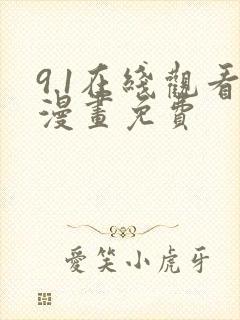 91在綫觀看
漫畫免費
愛笑小虎牙